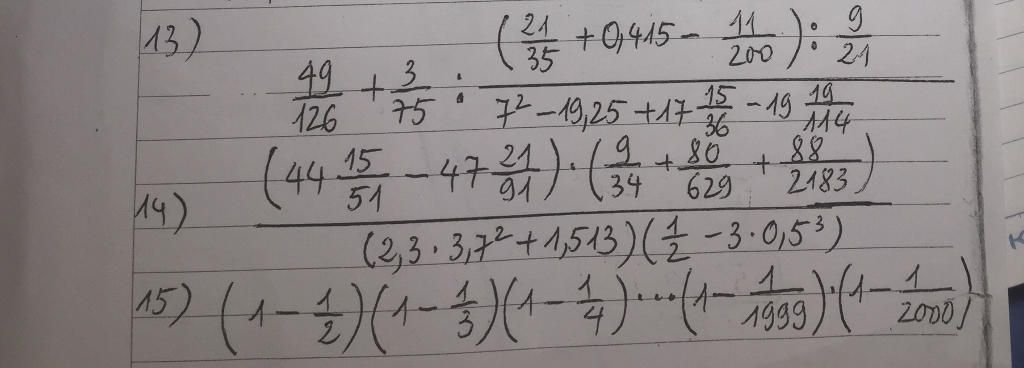 13) 49/126 + 3/75 : ((21/35 + 0,415 - 11/200) : 9/21)/(7² - 19,25 + 17 15/36 - 19 19/114)
14) ((44 15/51 - 47 21/91) · (9/34 + 80/629 + 88/2183))/((2,3 · 3,7² + 1,513)(1/2 - 3 · 0,5³))
15) (1 - 1/2)(1 - 1/3)(1 - 1/4) · ... (1 - 1/1999) · (1 - 1/2000)